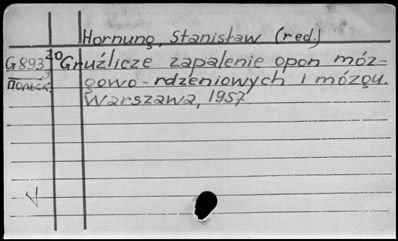 Hornung, Stanisław (red.)
G893 Gruźlicze zapalenie opon móz=
gowo-rdzeniowych i mózgu.
Польск
Warszawa, 1957